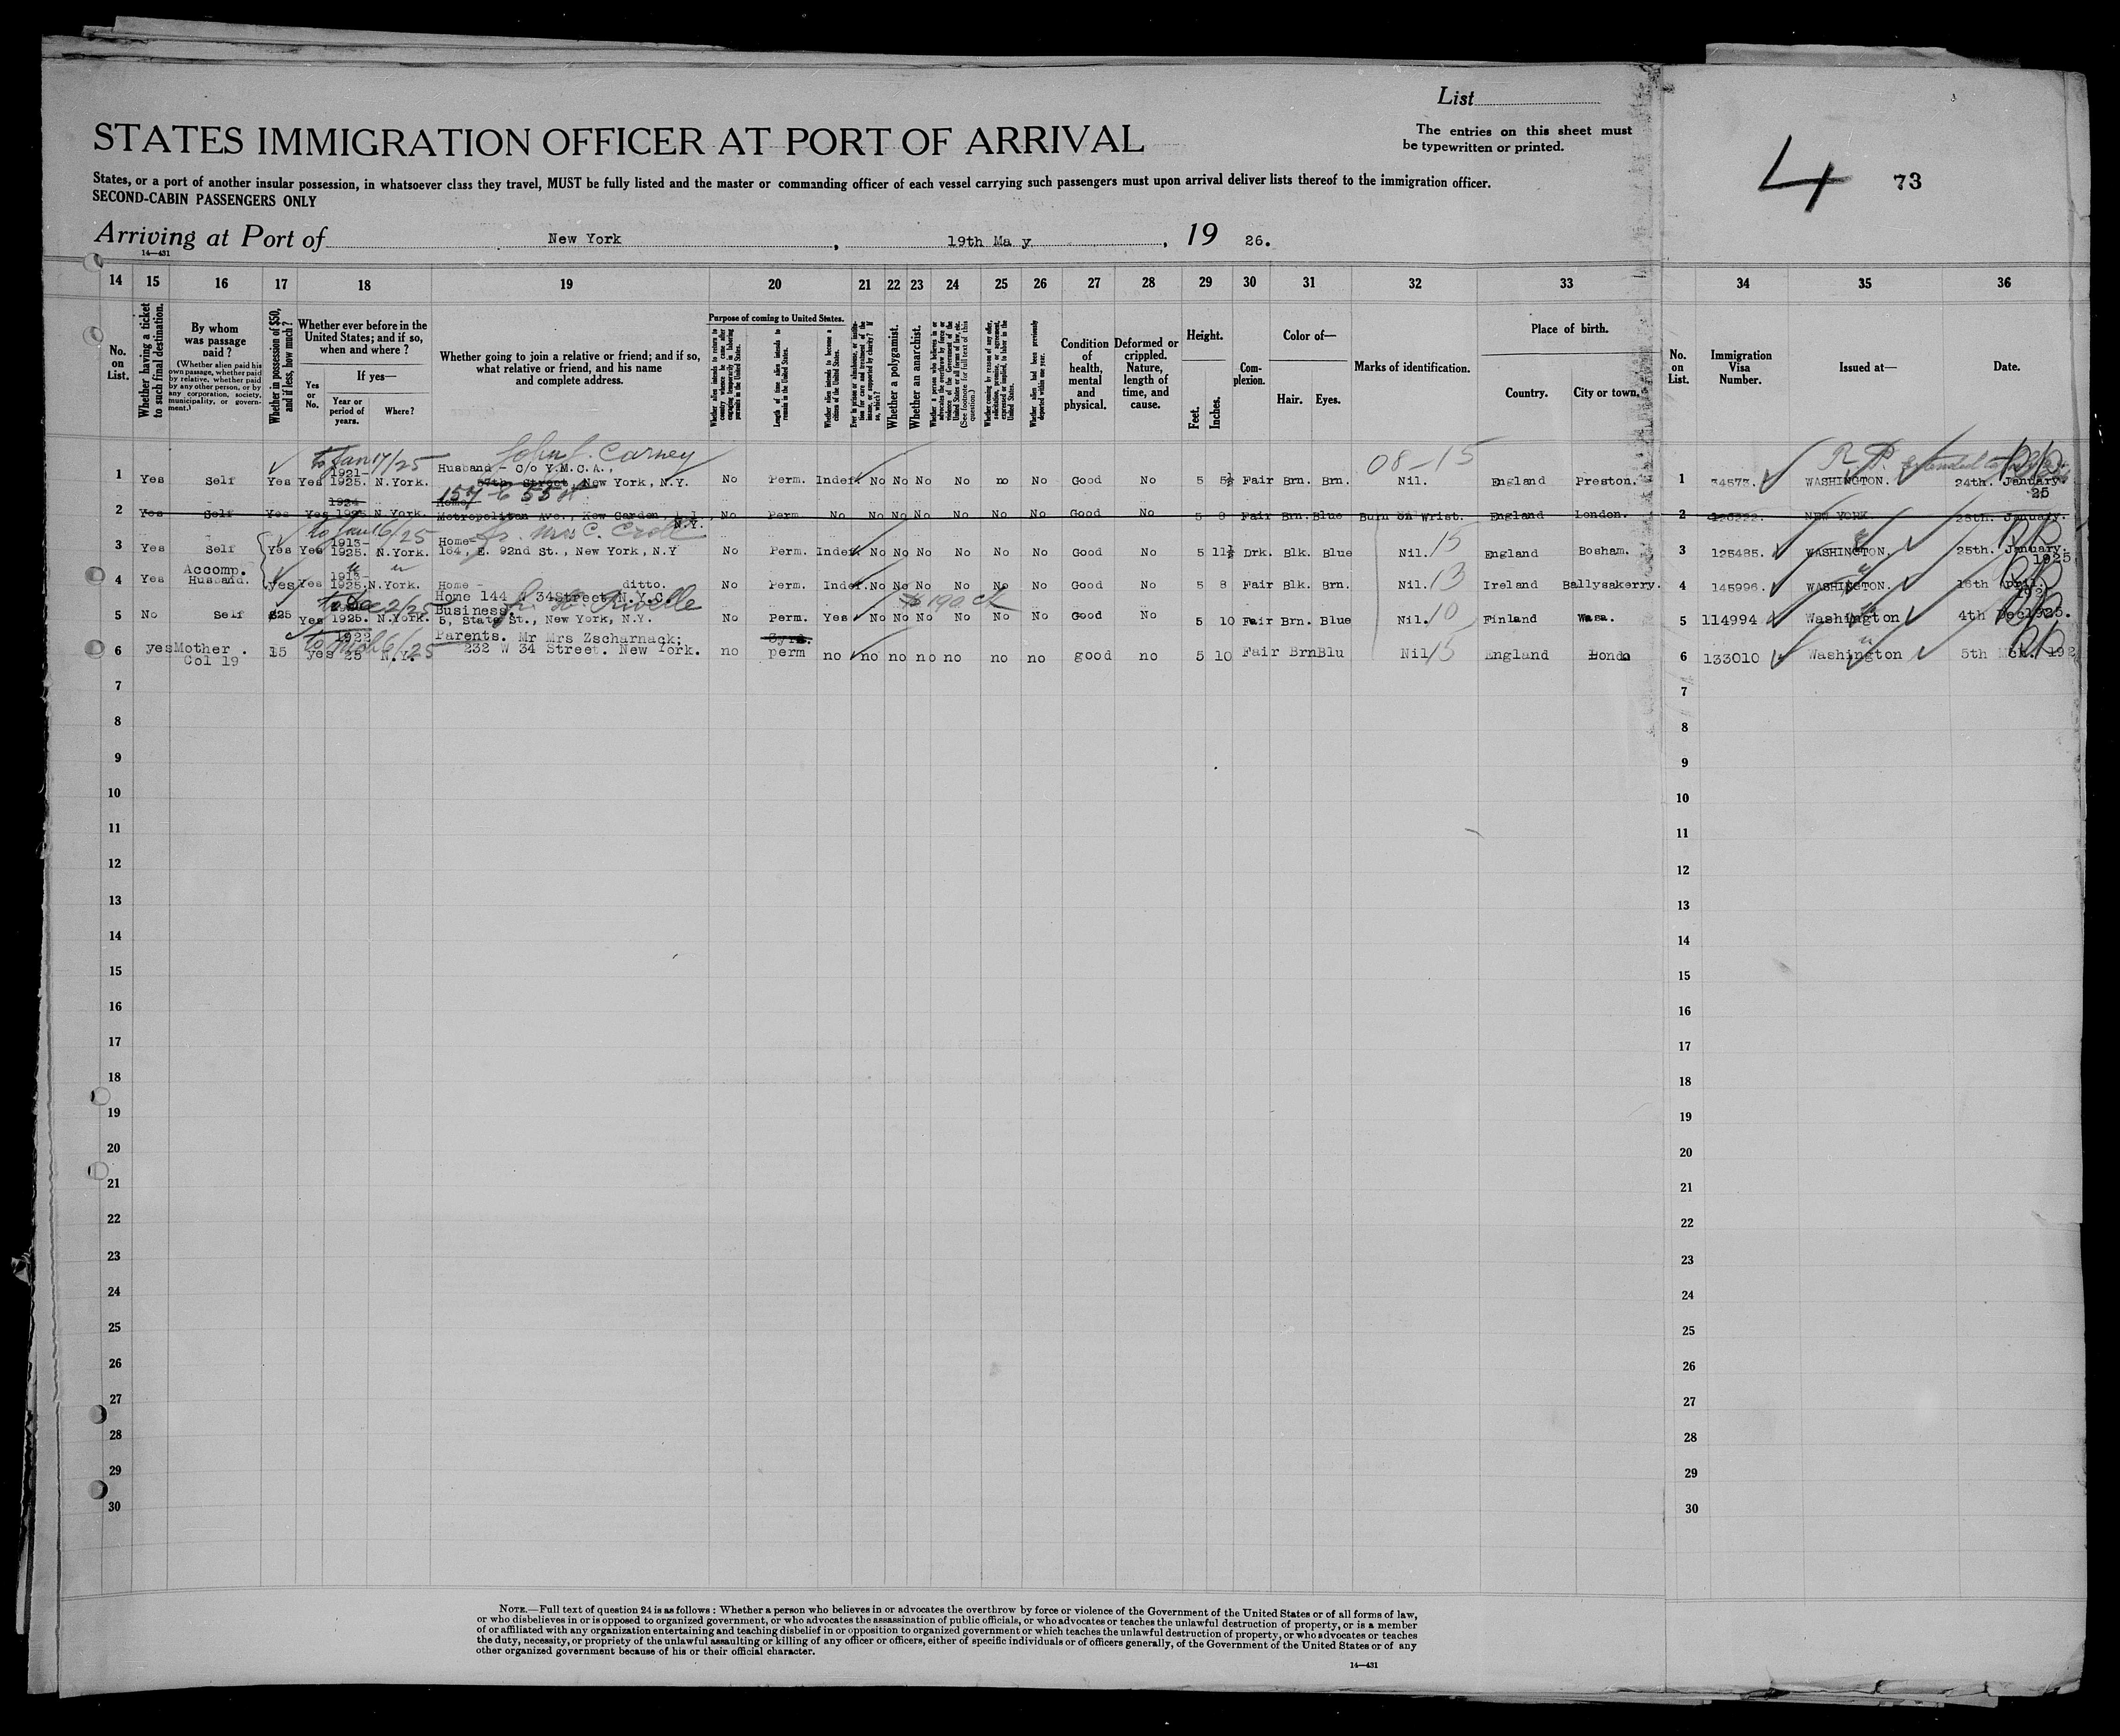 List
STATES IMMIGRATION OFFICER AT PORT OF ARRIVAL
The entries on this sheet must
be typewritten or printed.
4 73
States, or a port of another insular possession, in whatsoever class they travel, MUST be fully listed and the master or commanding officer of each vessel carrying such passengers must upon arrival deliver lists thereof to the immigration officer.
SECOND-CABIN PASSENGERS ONLY
Arriving at Port of New York, 19th Ma y, 19 26.
14—431
14 15 16 17 18 19 20 21 22 23 24 25 26 27 28 29 30 31 32 33 34 35 36
No. on List.
Whether having a ticket to such final destination.
By whom was passage paid?
(Whether alien paid his own passage, whether paid by relative, whether paid by any other person, or by any corporation, society, municipality, or government.)
Whether in possession of $50, and if less, how much?
Whether ever before in the United States; and if so, when and where?
Yes or No.
If yes—
Year or period of years.
Where?
Whether going to join a relative or friend; and if so, what relative or friend, and his name and complete address.
Purpose of coming to United States.
Whether alien intends to return to country whence he came after engaging temporarily in laboring pursuits in the United States.
Length of time alien intends to remain in the United States.
Whether alien intends to become a citizen of the United States.
Whether a polygamist.
Whether an anarchist.
(See footnote for full text of this question.)
Whether alien had been previously deported within one year.
Condition of health, mental and physical.
Deformed or crippled. Nature, length of time, and cause.
Height.
Feet.
Inches.
Complexion.
Color of—
Hair. Eyes.
Marks of identification.
Place of birth.
Country. City or town.
No. on List.
Immigration Visa Number.
Issued at—
Date.
to Jan 17/25 John J. Carney 08-15 R.P.
1 Yes Self Yes Yes 1921-1925. N.York. Husband - C/o Y.M.C.A., 57th Street, New York, N.Y. No Perm. Indef No No No No no No Good No 5 5½ Fair Brn. Brn. Nil. England Preston. 1 34573. WASHINGTON. 24th. January. 25
157 E 55 st
2 Yes Self Yes Yes 1924 1925 N.York. Home Metropolitan Ave., Kew Garden, L.I. N.Y. No Perm No No No No No No No Good No 5 8 Fair Brn. Blue Burn on Wrist. England London. 2 NEW YORK 28th. January.
to Jan 16/25 Mrs C. Croll
3 Yes Self Yes Yes 1913-1925. N.York. Home- 164, E. 92nd St., New York, N.Y No Perm. Indef No No No No No No Good No 5 11½ Drk. Blk. Blue Nil. 15 England Bosham. 3 125485. WASHINGTON. 25th. January. 1925
4 Yes Accomp. Husband. Yes Yes 1913-1925. N.York. Home - ditto. No Perm. Indef. No No No No No No Good No 5 8 Fair Blk. Brn. Nil. 13 Ireland Ballysakerry. 4 145996. WASHINGTON. 16th April.
Home 144 W 34Street N.Y.C.
to Dec 2/25 Rivelle
5 No Self $25 Yes 1925. N.York. Business. 5, State St., New York, N.Y. No Perm. Yes No No No No No No Good No 5 10 Fair Brn. Blue Nil. 10 Finland Wasa. 5 114994 Washington 4th Dec1925.
6 yes Mother. Col 19 15 yes 1922 25 N.Y. Parents. Mr Mrs Zscharnack; 232 W 34 Street. New York. no perm no no no no no no no good no 5 10 Fair Brn Blu Nil 15 England Londn 6 133010 Washington 5th Mch. 192
7 7
8 8
9 9
10 10
11 11
12 12
13 13
14 14
15 15
16 16
17 17
18 18
19 19
20 20
21 21
22 22
23 23
24 24
25 25
26 26
27 27
28 28
29 29
30 30
NOTE.—Full text of question 24 is as follows: Whether a person who believes in or advocates the overthrow by force or violence of the Government of the United States or of all forms of law,
or who disbelieves in or is opposed to organized government, or who advocates the assassination of public officials, or who advocates or teaches the unlawful destruction of property, or is a member
of or affiliated with any organization entertaining and teaching disbelief in or opposition to organized government or which teaches the unlawful destruction of property, or who advocates or teaches
the duty, necessity, or propriety of the unlawful assaulting or killing of any officer or officers, either of specific individuals or of officers generally, of the Government of the United States or of any
other organized government because of his or their official character.
14—431